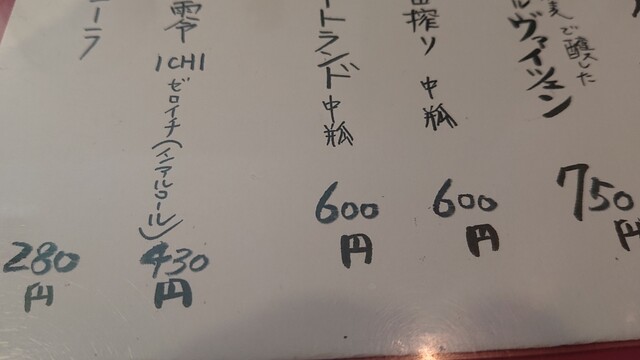 醸した
ルヴァイツェン
750
円
搾り 中瓶
600
円
ートランド 中瓶
600
円
零 ICHI
ゼロイチ(インアルコール)
430
円
ーラ
280
円